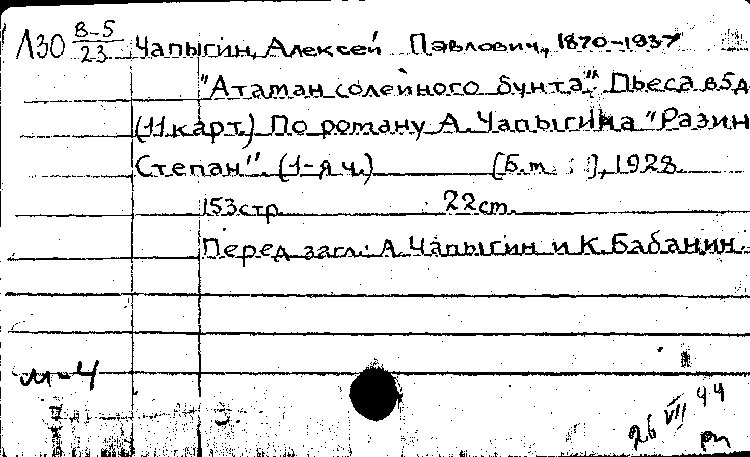 Л30 8-5/23 Чапыгин, Алексей Павлович, 1870-1937
"Атаман солейного бунта". Пьеса в 5 д
(11 карт.) По роману А. Чапыгина "Разин
Степан". (1-я ч.) [Б.м. ], 1928
153 стр. 22 ст.
Перед загл.: А. Чапыгин и К. Бабанин.
м-4
26 VII 44